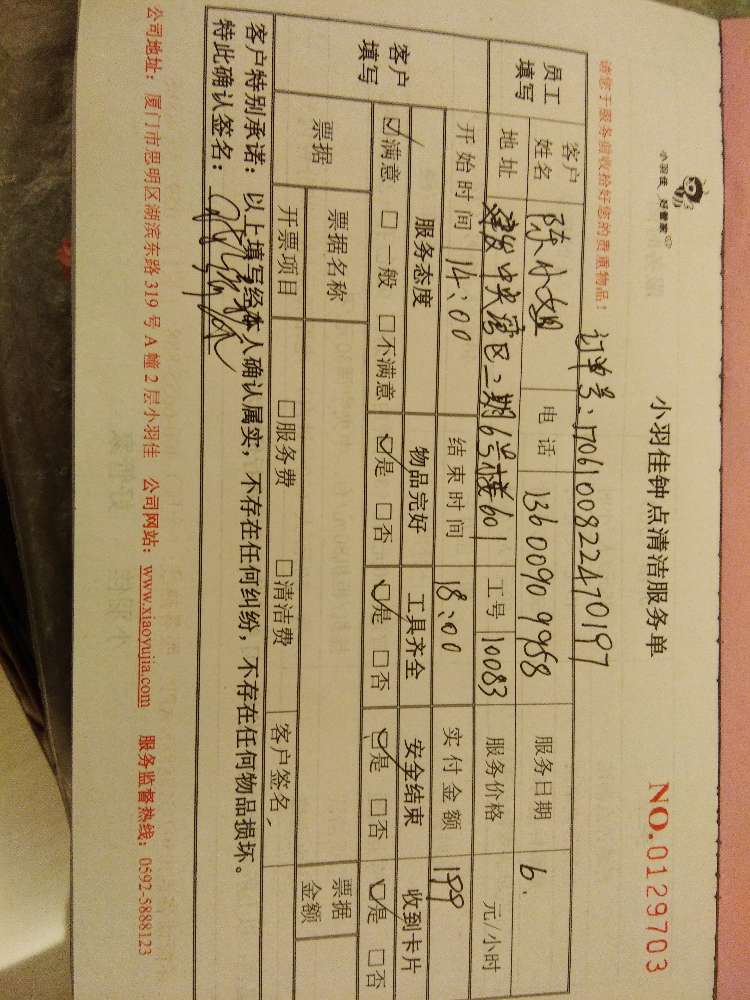 小羽佳 好管家
小羽佳钟点清洁服务单
NO.0129703
请您于服务前收拾好您的贵重物品！
订单号：1706100822470197
员工填写
客户姓名 陈小姐 电话 13600909958 服务日期 6.
地址 建发中央湾区二期6号楼601 工号 10083 服务价格 元/小时
开始时间 14:00 结束时间 18:00 实付金额 199
客户填写
服务态度 物品完好 工具齐全 安全结束 收到卡片
☑满意 □一般 □不满意 ☑是 □否 ☑是 □否 ☑是 □否 ☑是 □否
票据 票据名称 票据金额
开票项目 □服务费 □清洁费 客户签名
客户特别承诺：以上填写经本人确认属实，不存在任何纠纷，不存在任何物品损坏。
特此确认签名：
公司地址：厦门市思明区湖滨东路 319 号 A 幢 2 层小羽佳 公司网站：www.xiaoyujia.com 服务监督热线：0592-5888123